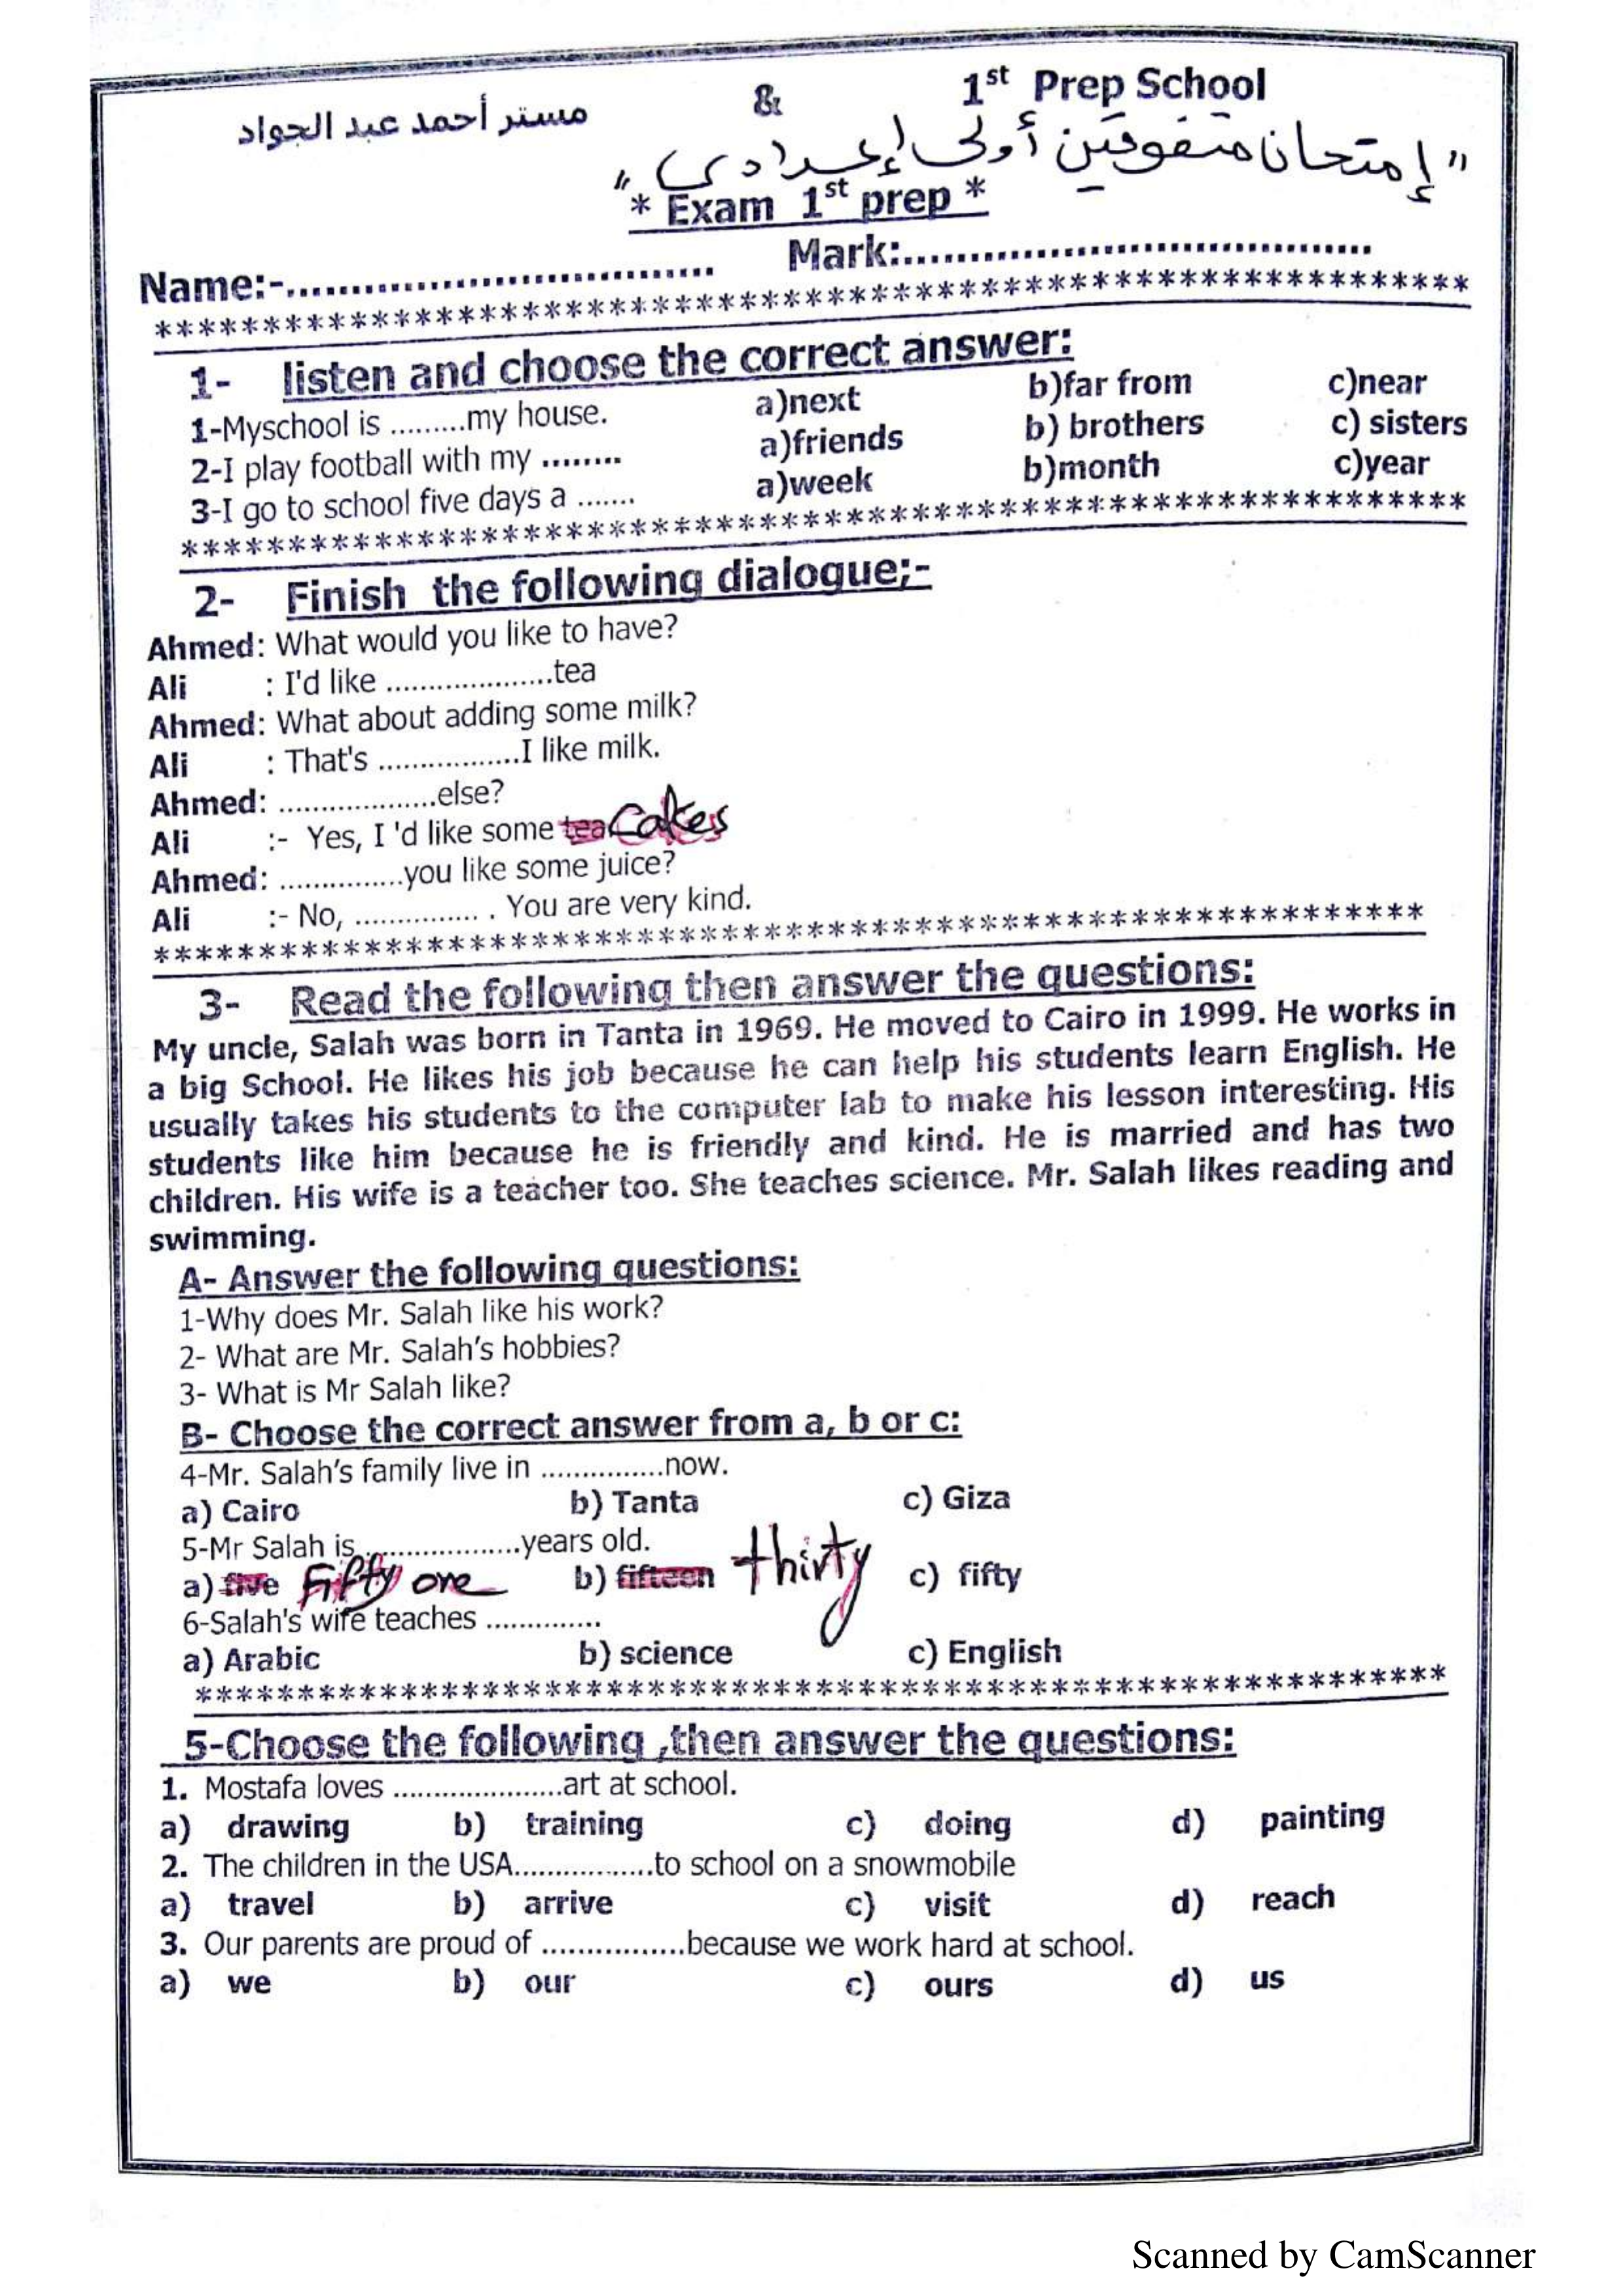 مستر أحمد عبد الجواد & 1st Prep School
"إمتحان متفوقين أولى إعدادى"
* Exam 1st prep *
Name:-................................. Mark:....................................
*************************************************************
1- listen and choose the correct answer:
1-Myschool is .........my house. a)next b)far from c)near
2-I play football with my ........ a)friends b) brothers c) sisters
3-I go to school five days a ....... a)week b)month c)year
*************************************************************
2- Finish the following dialogue;-
Ahmed: What would you like to have?
Ali : I'd like ....................tea
Ahmed: What about adding some milk?
Ali : That's .................I like milk.
Ahmed: ...................else?
Ali :- Yes, I 'd like some tea Cakes
Ahmed: ...............you like some juice?
Ali :- No, ............... . You are very kind.
*************************************************************
3- Read the following then answer the questions:
My uncle, Salah was born in Tanta in 1969. He moved to Cairo in 1999. He works in
a big School. He likes his job because he can help his students learn English. He
usually takes his students to the computer lab to make his lesson interesting. His
students like him because he is friendly and kind. He is married and has two
children. His wife is a teacher too. She teaches science. Mr. Salah likes reading and
swimming.
A- Answer the following questions:
1-Why does Mr. Salah like his work?
2- What are Mr. Salah's hobbies?
3- What is Mr Salah like?
B- Choose the correct answer from a, b or c:
4-Mr. Salah's family live in ...............now.
a) Cairo b) Tanta c) Giza
5-Mr Salah is....................years old.
a) five Fifty one b) fifteen thirty c) fifty
6-Salah's wife teaches ..............
a) Arabic b) science c) English
*************************************************************
5-Choose the following ,then answer the questions:
1. Mostafa loves .....................art at school.
a) drawing b) training c) doing d) painting
2. The children in the USA.................to school on a snowmobile
a) travel b) arrive c) visit d) reach
3. Our parents are proud of .................because we work hard at school.
a) we b) our c) ours d) us
Scanned by CamScanner